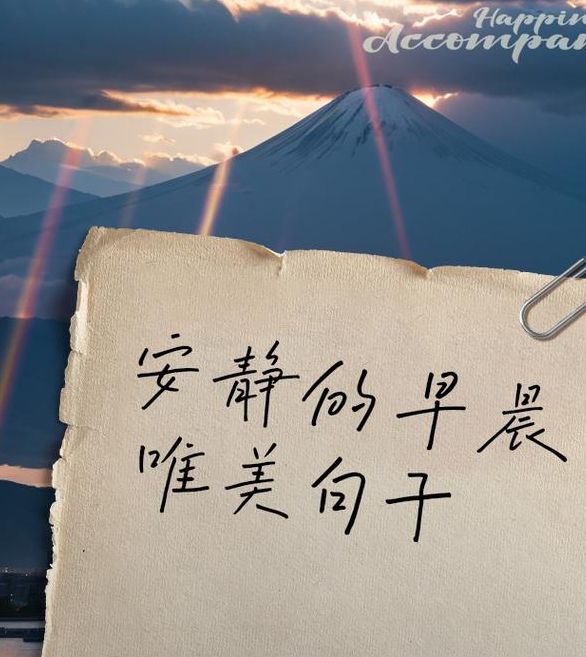 Happin
Accompan
安静的早晨
唯美句子